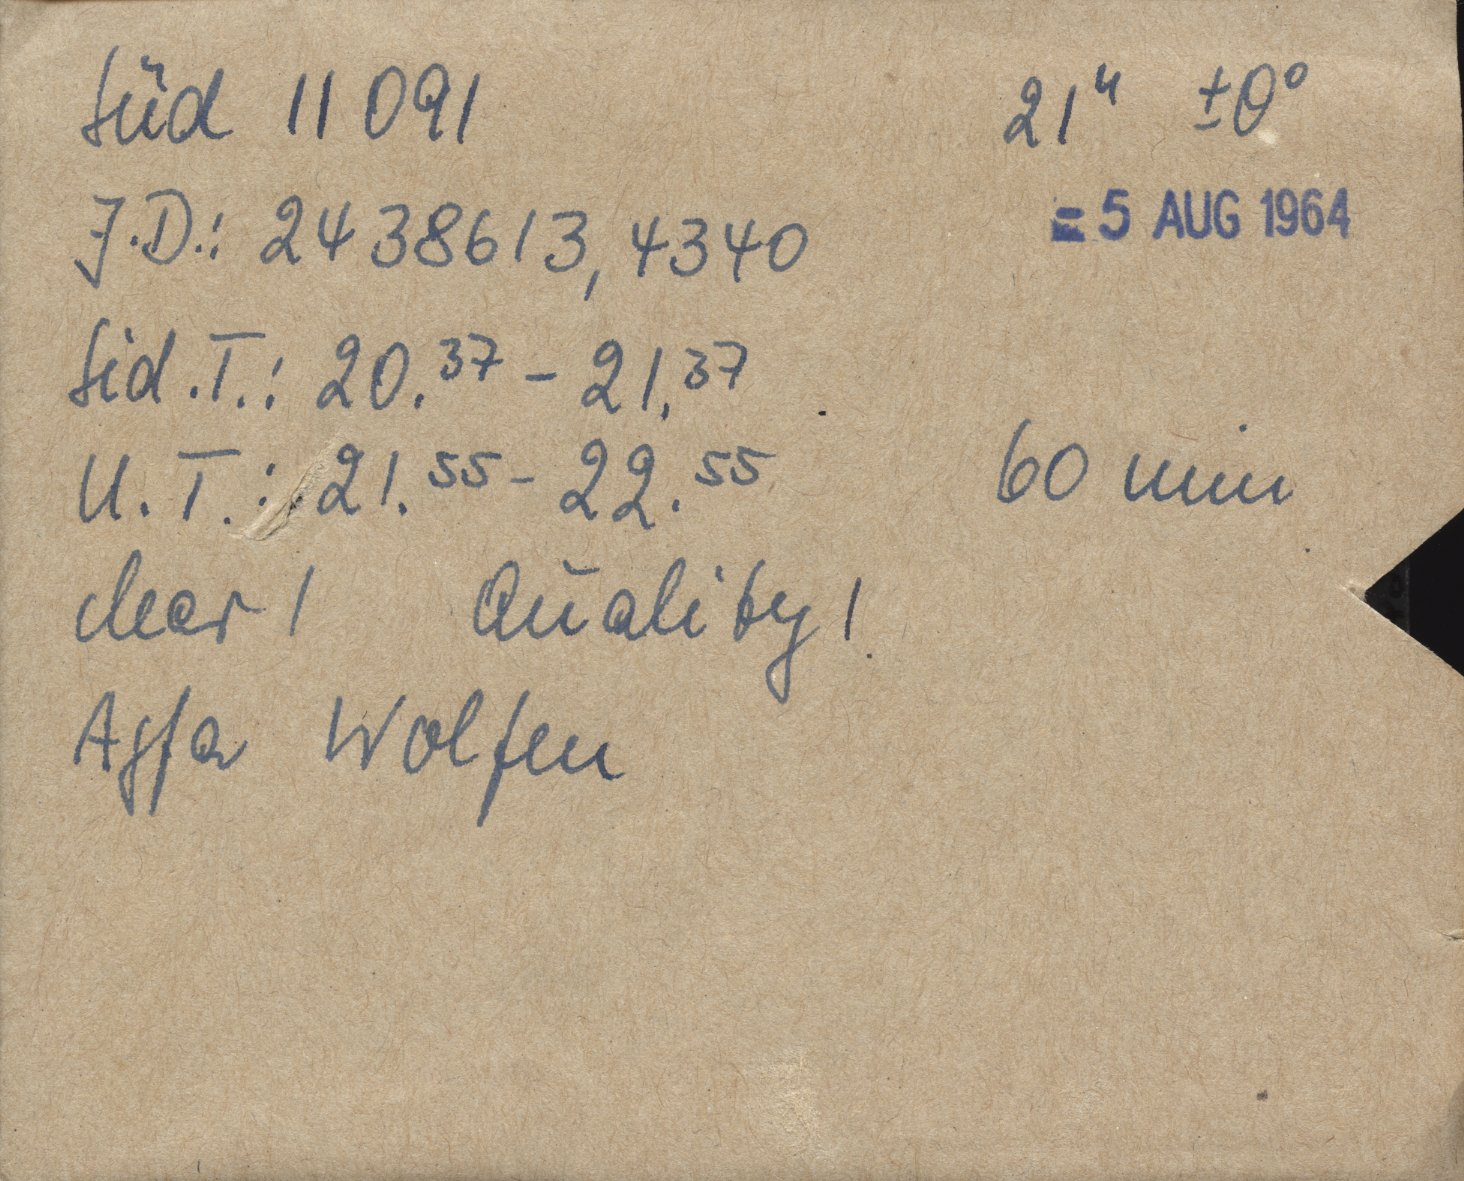 Süd 11 091 21ʰ ±0°
= 5 AUG 1964
J.D.: 2438613,4340
Sid.T.: 20.³⁷ - 21.³⁷
U.T.: 21.⁵⁵ - 22.⁵⁵ 60 min
clear! Quality!
Agfa Wolfen